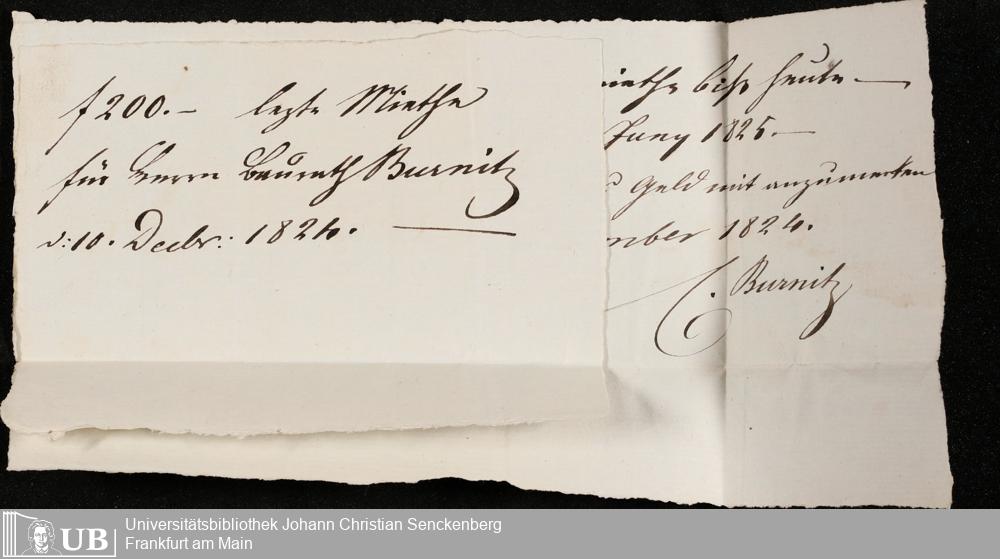 f 200.– lezte Miethe
für Herrn Baurath Burnitz
d: 10. Decbr: 1824.
miethe biß heute —
Juny 1825.—
Geld mit anzumerken
mber 1824.
C. Burnitz
UB
Universitätsbibliothek Johann Christian Senckenberg
Frankfurt am Main